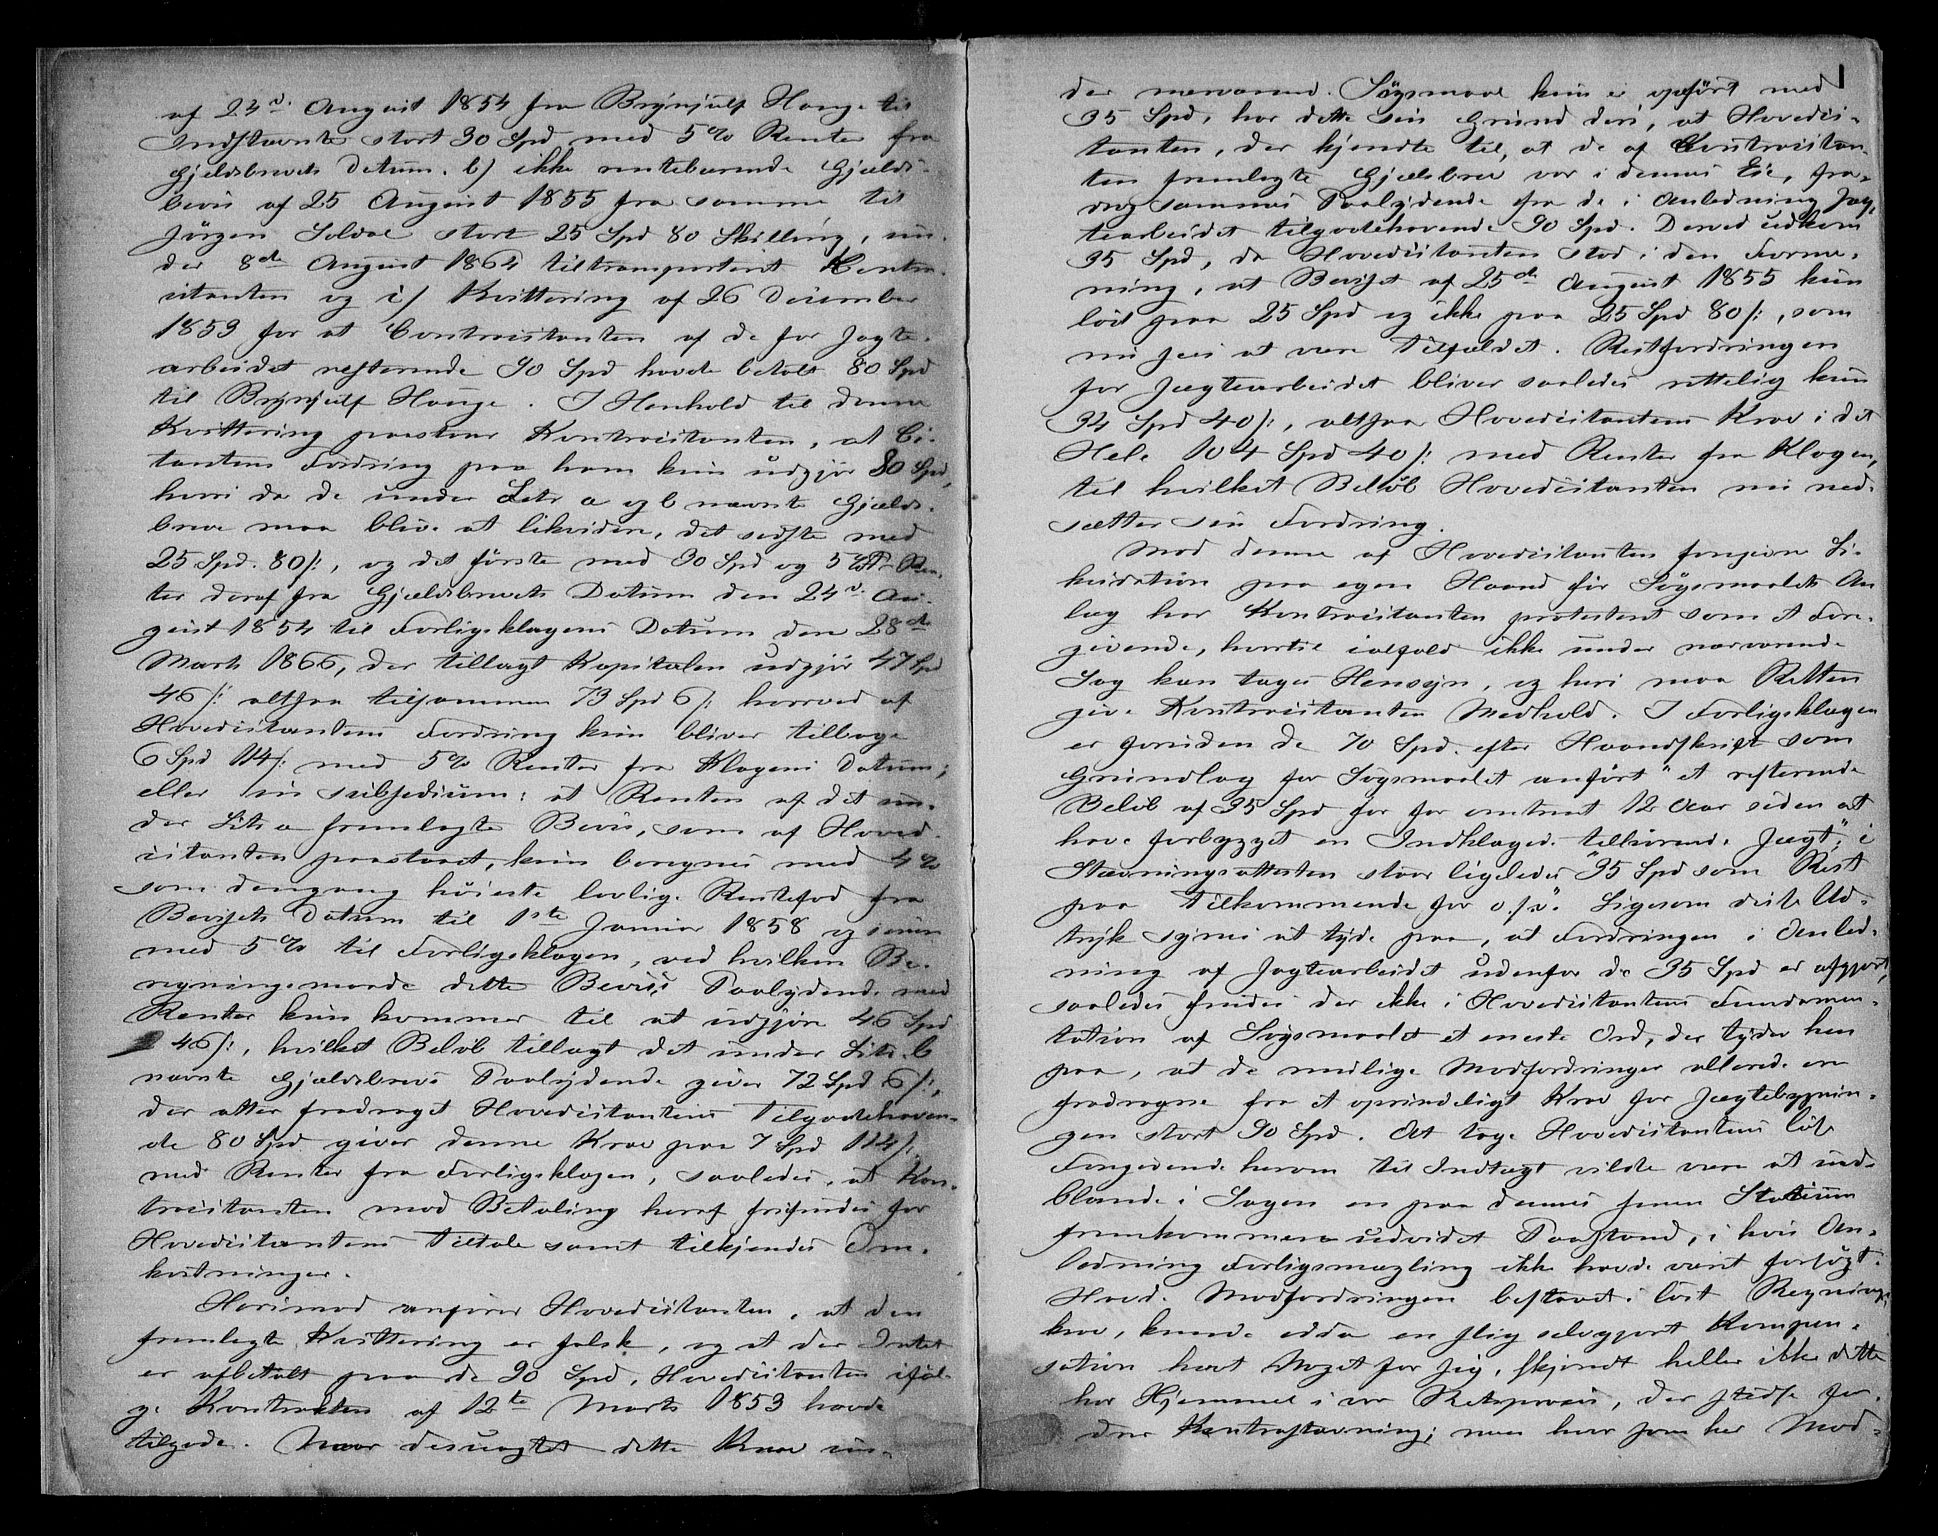 af 24d. August 1854 fra Brynjulf Hauge til
Indstævnte stort 30 Spd med 5 % Renter fra
Gjeldsbrevets Datum. b) ikke rentebærende Gjælds-
bevis af 25 August 1855 fra samme til
Jørgen Seldal stort 25 Spd 80 Skilling, un-
der 8de August 1864 tiltransporteret Contra-
citanten og c) Kvittering af 26 December
1853 for at Contracitanten af de for Jagte-
arbeidet resterende 90 Spd havde betalt 80 Spd
til Brynjulf Hauge. I Henhold til denne
Kvittering paastaar Kontracitanten, at Ci-
tantens Fordring paa ham kun udgjør 80 Spd,
hvori da de under Litr a og b nævnte Gjælds-
breve maa blive at likvidere, det sidste med
25 Spd. 80 /:, og det første med 30 Spd og 5 % Ren-
ter deraf fra Gjældsbrevets Datum den 24d. Au-
gust 1854 til Forligsklagens Datum den 28de
Marts 1866, der tillagt Kapitalen udgjør 47 Spd
46 /: altsaa tilsammen 73 Spd 6 /: hvorved af
Hovedcitantens Fordring kun bliver tilbage
6 Spd 114 /: med 5 % Renter fra Klagens Datum;
eller in subsidium: at Renten af det un-
der Litr a fremlagte Bevis, som af Hoved-
citanten paastaaet, kun beregnes med 4 %
som dengang høieste lovlige Rentefod fra
Bevisets Datum til 1ste Januar 1858 og siden
med 5 % til Forligsklagen, ved hvilken Be-
regningsmaade dette Bevis's Paalydende med
Renter kun kommer til at udgjøre 46 Spd
46 /:, hvilket Beløb tillagt det under Litr. b
nævnte Gjældsbrevs Paalydende giver 72 Spd 6 /:,
der atter fradraget Hovedcitantens Tilgodehaven-
de 80 Spd giver denne Krav paa 7 Spd 114 /:
med Renter fra Forligsklagen, saaledes, at Kon-
tracitanten mod Betaling heraf frifindes for
Hovedcitantens Tiltale samt tilkjendes Om-
kostninger.
Herimod anfører Hovedcitanten, at den
fremlagte Kvittering er falsk, og at der Intet
er afbetalt paa de 90 Spd, Hovedcitanten iføl-
ge Kontrakten af 12te Marts 1853 havde
tilgode. Naar desuagtet dette Krav un-
1
der nærværend. Søgsmaal kun er opført med
35 Spd, har dette sin Grund deri, at Hovedci-
tanten, der kjendte til, at de af Contracitan-
ten fremlagte Gjældsbrev var i dennes Eie, fra-
drog sammes Paalydende fra de i Anledning Jag-
tearbeidet tilgodehavende 90 Spd. Derved udkom
35 Spd, da Hovedcitanten stod i den Forme-
ning, at Beviset af 25de August 1855 kun
lød paa 25 Spd og ikke paa 25 Spd 80 /:, som
nu sees at være Tilfældet. Restfordringen
for Jægtearbeidet bliver saaledes rettelig kun
34 Spd 40 /:, altsaa Hovedcitantens Krav i det
Hele 104 Spd 40 /: med Renter fra Klagen,
til hvilket Beløb Hovedcitanten nu ned-
sætter sin Fordring.
Mod denne af Hovedcitanten foregivne Li-
kvidation paa egen Haand før Søgsmaalets An-
læg har Kontracitanten protesteret som et Fore-
givende, hvortil ialfald ikke under nærværende
Sag kan tages Hensyn, og heri maa Retten
give Kontracitanten Medhold. I Forligsklagen
er foruden de 70 Spd. efter Haandskrift som
Grundlag for Søgsmaalet anført "et resterende
Beløb af 35 Spd for for omtrent 12 Aar siden at
have forbygget en Indklagede tilhørende Jægt," i
Stævningsattesten staar ligeledes "35 Spd som Rest
paa Tilkommende for o. s. v." Ligesom disse Ud-
tryk synes at tyde paa, at Fordringen i Anled-
ning af Jagtearbeidet udenfor de 35 Spd er afgjort,
saaledes findes der ikke i Hovedcitantens Fundamen-
tation af Søgsmaalet et eneste Ord, der tyder hen
paa, at de mulige Modfordringer allerede ere
fradragne fra et oprindeligt Krav for Jægtebygnin-
gen stort 90 Spd. At tage Hovedcitantens løse
Foregivende herom til Indtægt vilde være at ind-
blande i Sagen en paa dennes senere Stadium
fremkommen udvidet Paastand, i hvis An-
ledning Forligsmægling ikke havde været forsøgt.
Havde Modfordringen bestaaet i løst Regnings-
krav, kunde endda en slig selvgjort Kompen-
sation havt Noget for sig, skjøndt heller ikke dette
har Hjemmel i vor Retspraxis, der stedse for-
drer Kontrastævning; men hvor som her Mod-